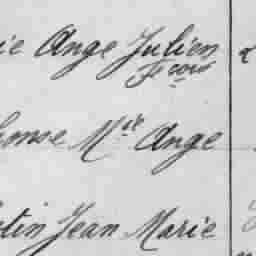 ie Ange Julien
Fçois
honse Mie Ange
tin Jean Marie